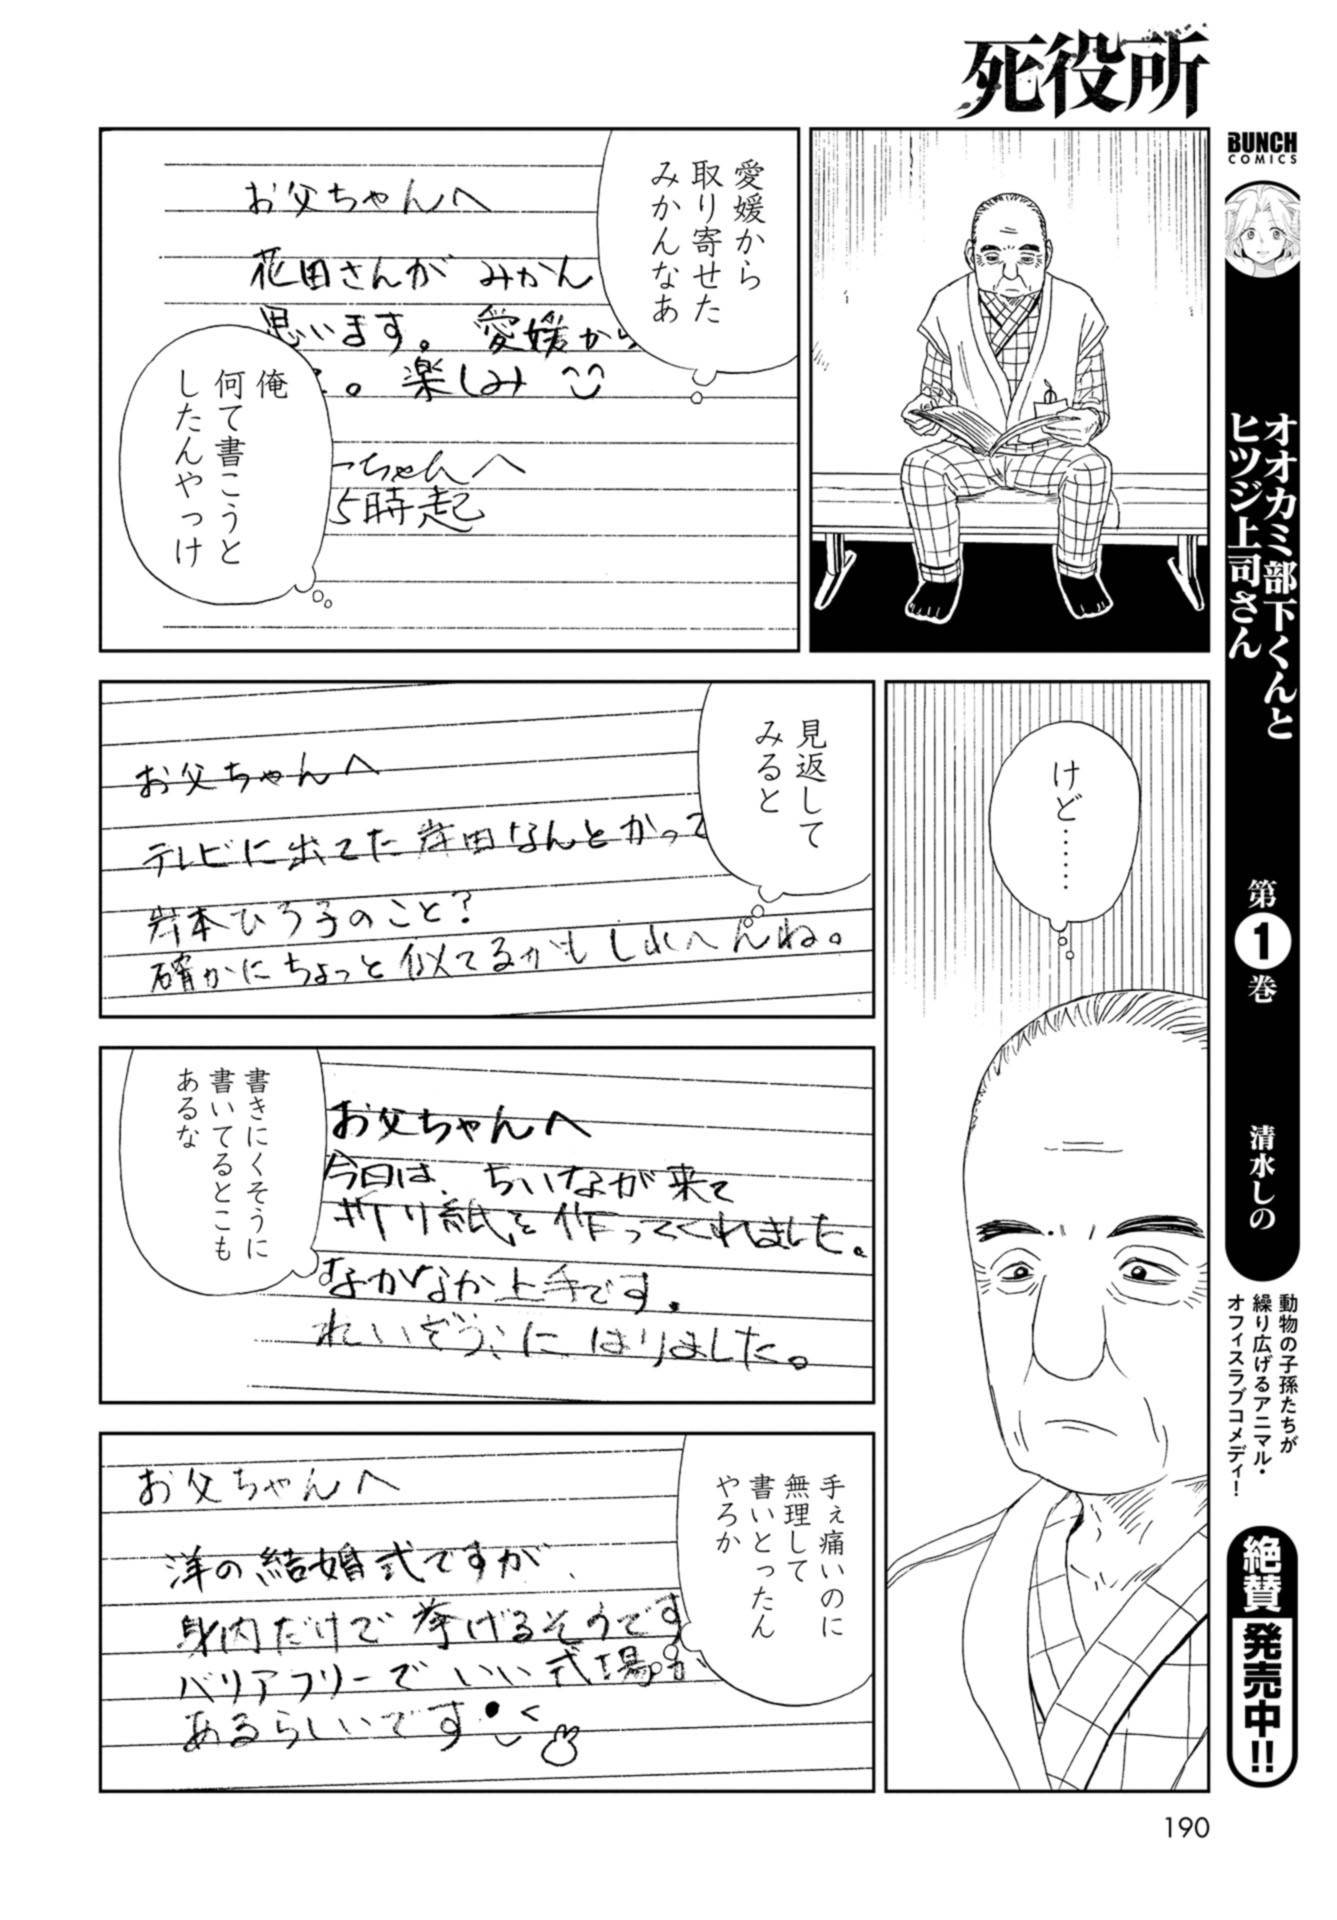 死役所
愛媛から
取り寄せた
みかんなあ
お父ちゃんへ
花田さんが みかん
思います。愛媛から
。楽しみ
俺
何て書こうと
したんやっけ
ーちゃんへ
5時起
けど……
見返して
みると
お父ちゃんへ
テレビに出てた岸田なんとかって
岩本ひろ子のこと?
確かにちょっと似てるかもしれへんね。
書きにくそうに
書いてるとこも
あるな
お父ちゃんへ
今日は、ちいなが来て
折り紙を作ってくれました。
なかなか上手です。
れいぞうこにはりました。
手ぇ痛いのに
無理して
書いとったん
やろか
お父ちゃんへ
洋の結婚式ですが、
身内だけで挙げるそうです
バリアフリーでいい式場が
あるらしいです
BUNCH
COMICS
オオカミ部下くんと
ヒツジ上司さん
第1巻
清水しの
動物の子孫たちが
繰り広げるアニマル・
オフィスラブコメディ!
絶賛
発売中!!
190